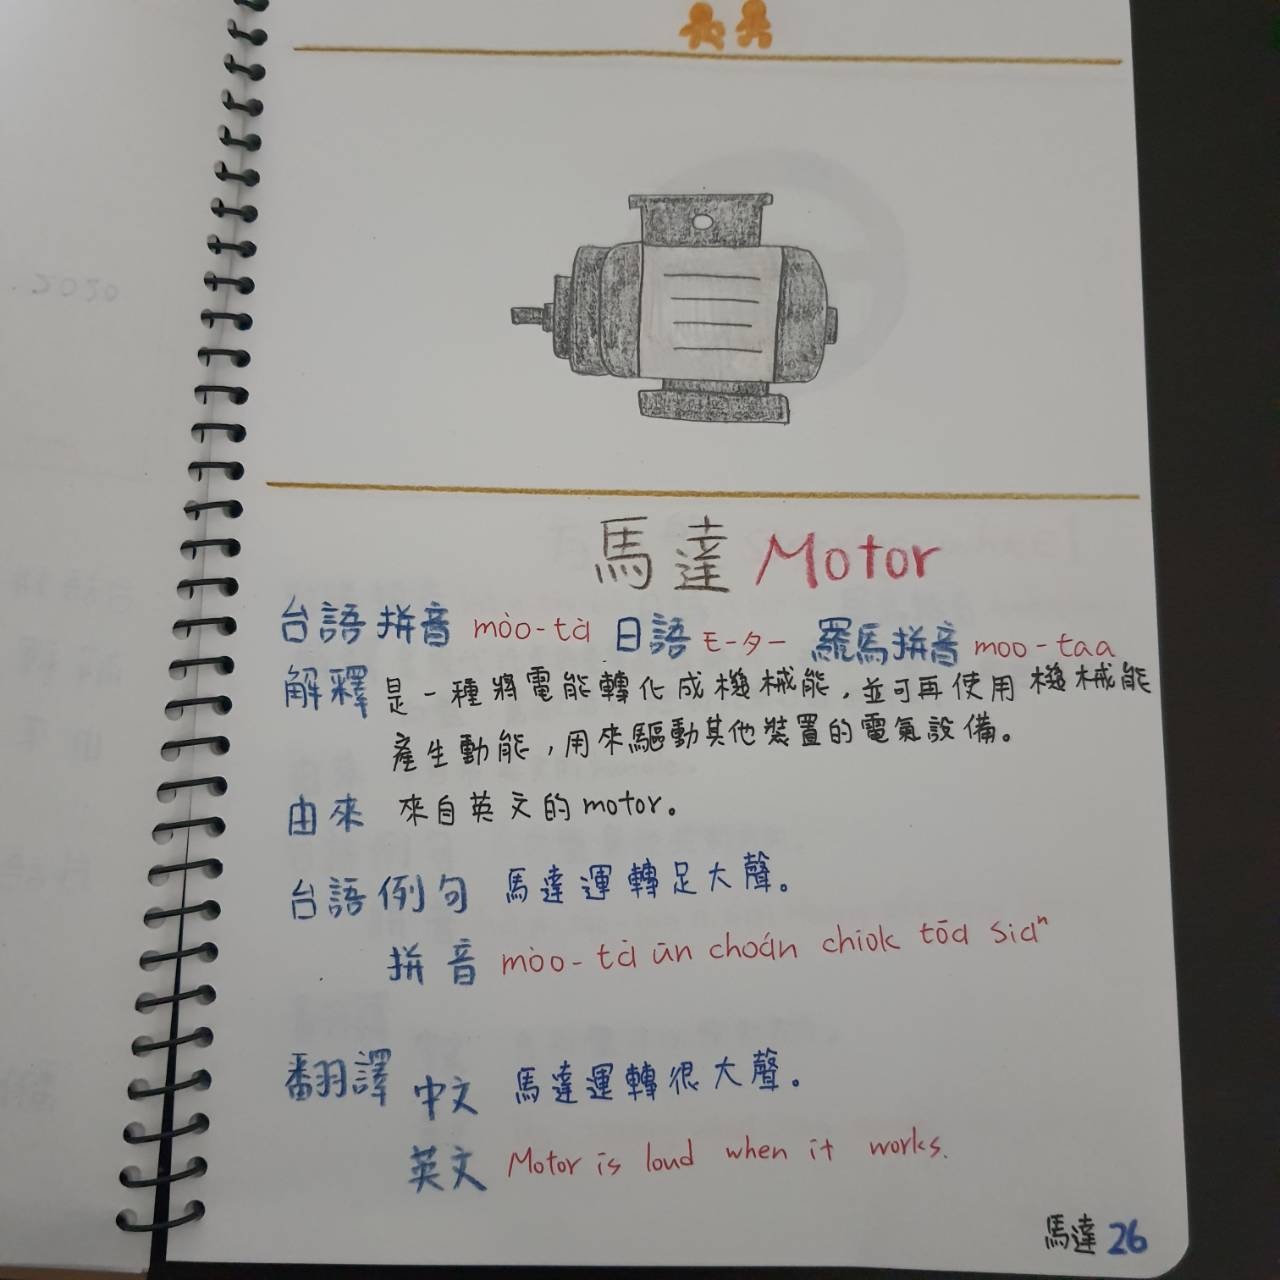 馬達 Motor
台語拼音 mòo-tà 日語 モーター 羅馬拼音 moo-taa
解釋 是一種將電能轉化成機械能，並可再使用機械能
產生動能，用來驅動其他裝置的電氣設備。
由來 來自英文的motor。
台語例句 馬達運轉足大聲。
拼音 mòo-tà ūn choán chiok tōa siaⁿ
翻譯 中文 馬達運轉很大聲。
英文 Motor is loud when it works.
馬達 26
2020